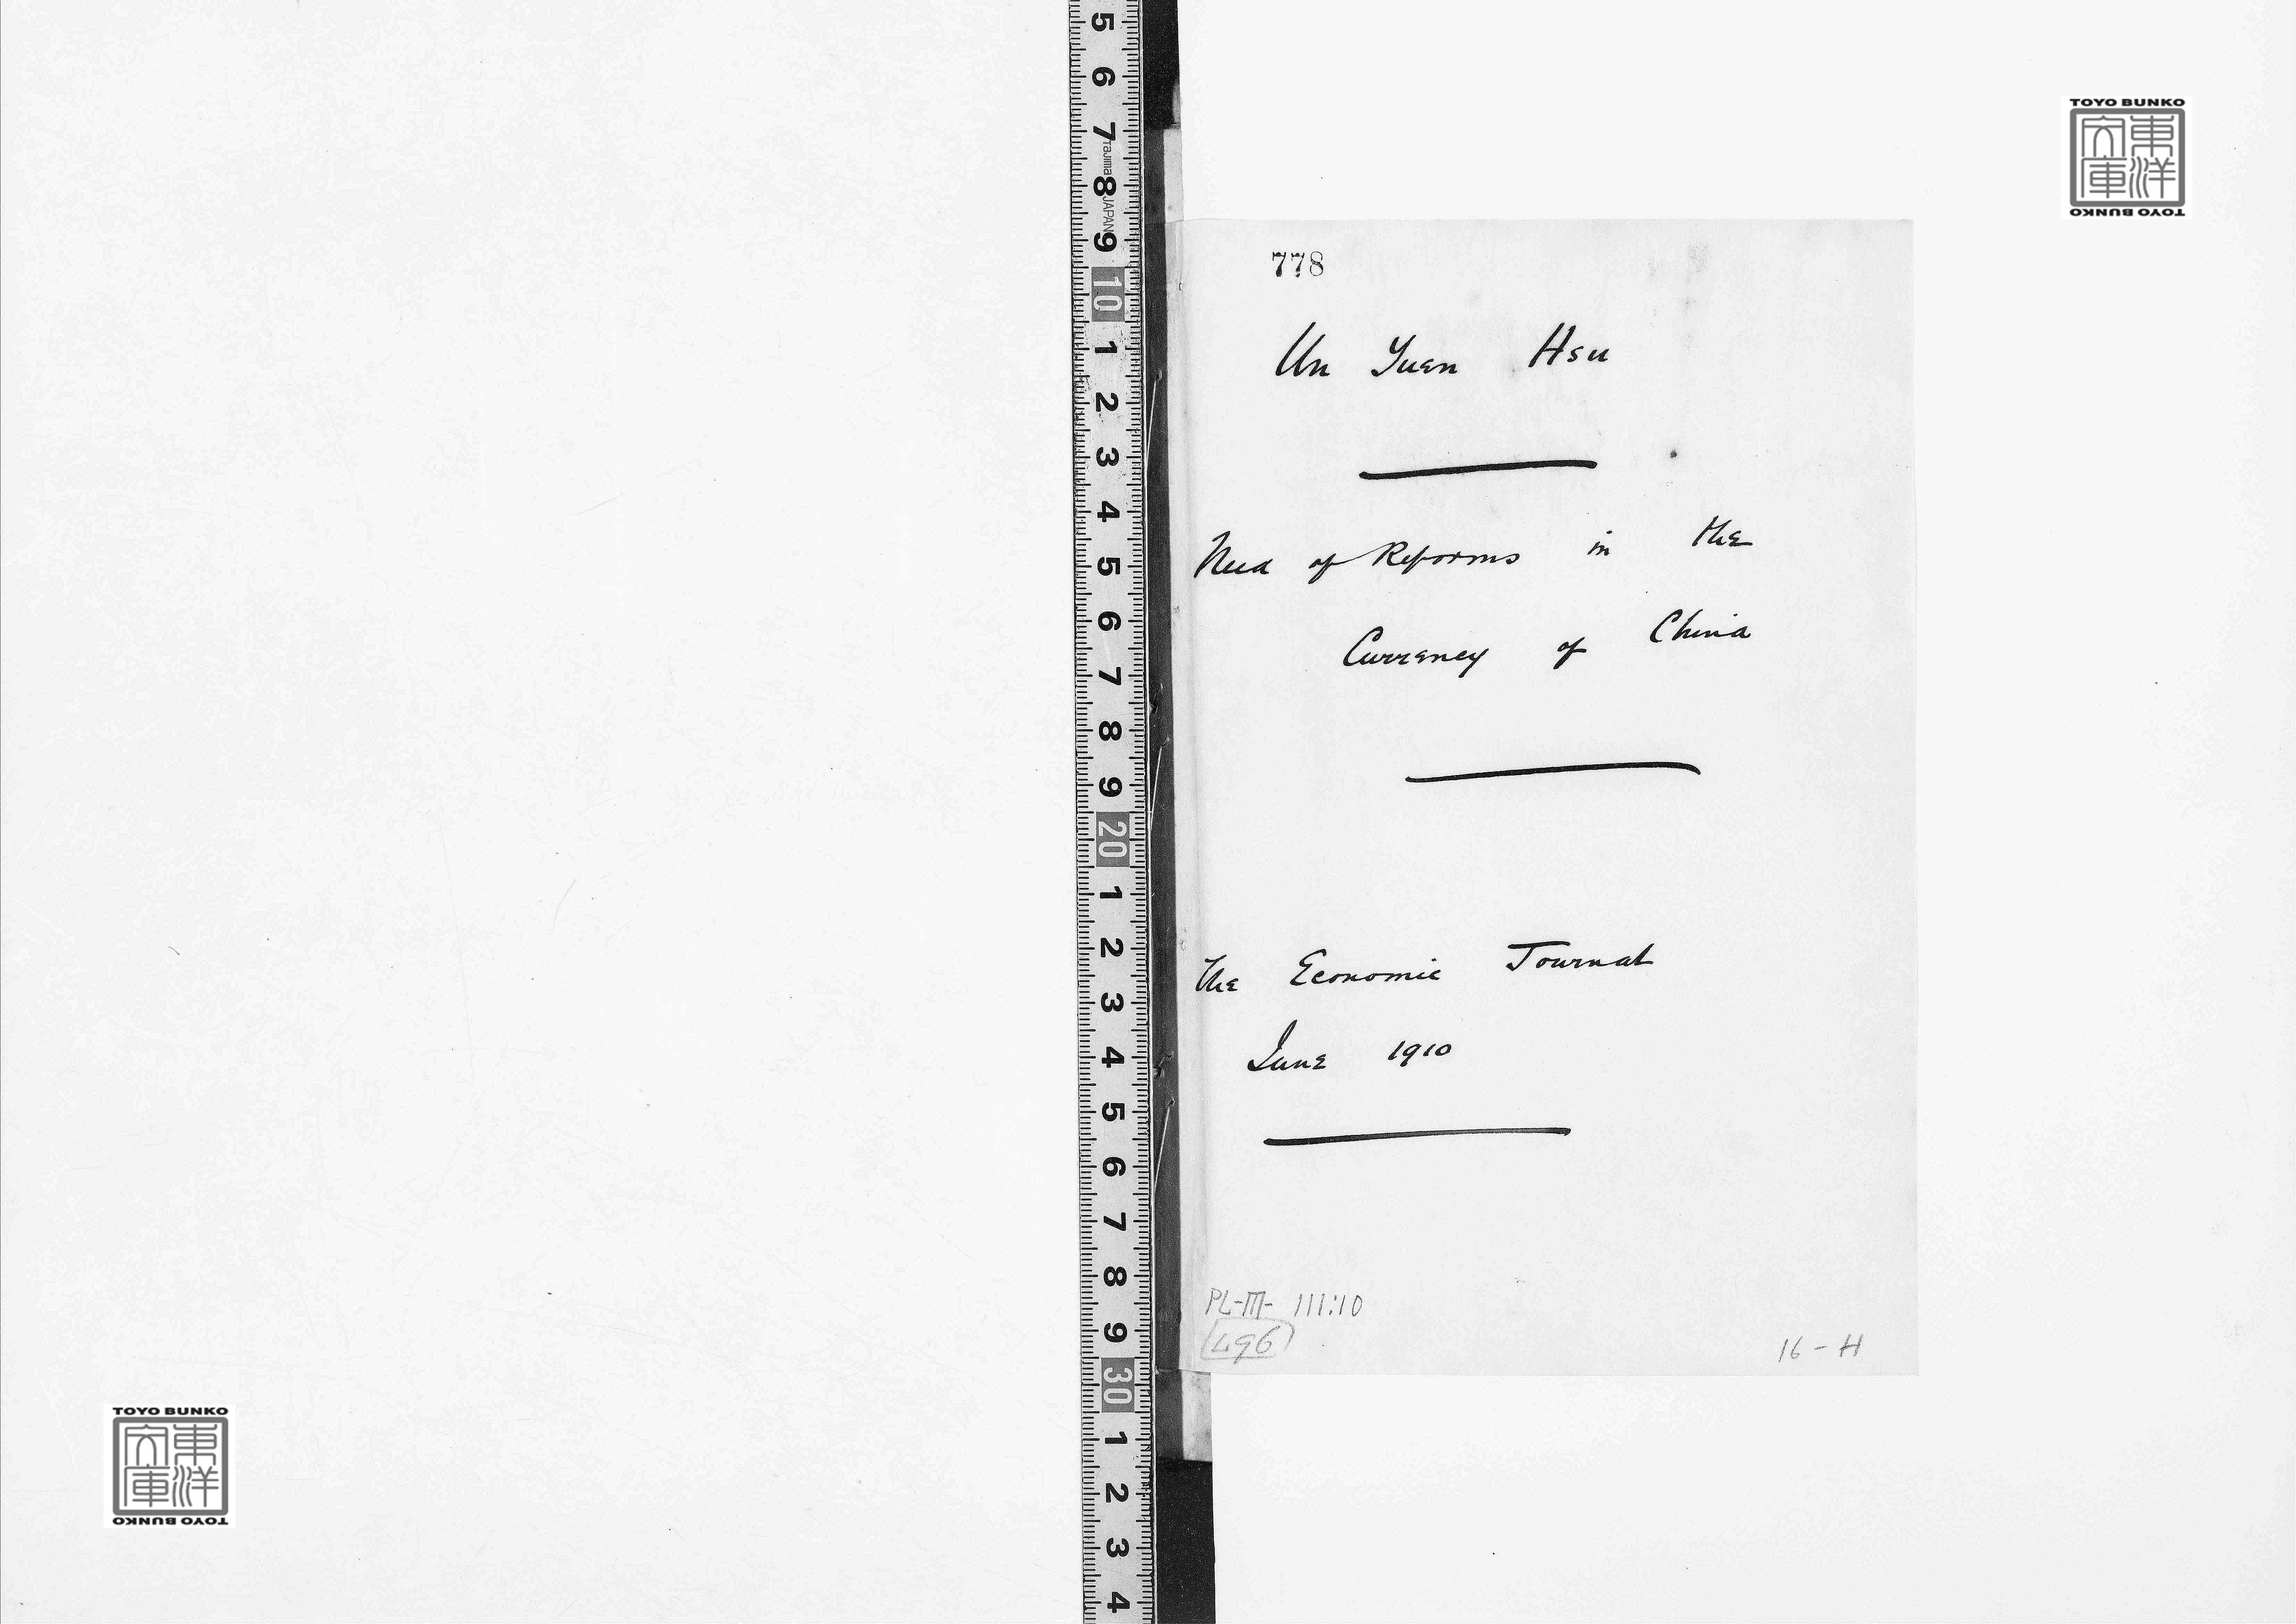 778
Un Yuen Hsu
Need of Reforms in the
Currency of China
The Economic Journal
June 1910
PL-III- 111:10
496
16-H
TOYO BUNKO
東洋
文庫
TOYO BUNKO
TOYO BUNKO
東洋
文庫
TOYO BUNKO
5 6 7 8 9 10 1 2 3 4 5 6 7 8 9 20 1 2 3 4 5 6 7 8 9 30 1 2 3 4
Tajima JAPAN